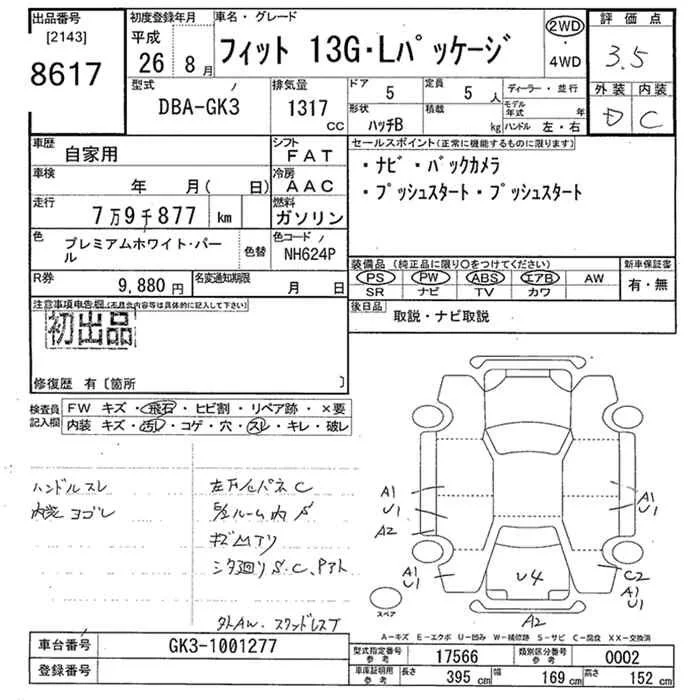 出品番号 [2143] 8617
初度登録年月 平成 26年 8月
車名・グレード フィット 13G・Lパッケージ
2WD ・ 4WD
評価点 3.5
外装 D 内装 C
型式 DBA-GK3
排気量 1317 cc
ドア 5 定員 5人
形状 ハッチB 積載 kg
ディーラー・並行
モデル年式 年
ハンドル 左・右
車歴 自家用
シフト FAT
車検 年 月( 日)
冷房 AAC
走行 7万9千877 km
燃料 ガソリン
色 プレミアムホワイト・パール 色替
色コードNo NH624P
R券 9,880円
名変通知期限 月 日
セールスポイント(正常に機能するものに限ります)
・ナビ・バックカメラ
・プッシュスタート・プッシュスタート
装備品(純正品に限り○をつけてください)
PS PW ABS エアB AW
SR ナビ TV カワ
新車保証書 有・無
後日品 取説・ナビ取説
注意事項申告欄(不具合内容等は具体的に記入して下さい)
初出品
修復歴 有〔箇所 〕
検査員記入欄
FW キズ・飛石・ヒビ割・リペア跡・×要
内装 キズ・汚レ・コゲ・穴・スレ・キレ・破レ
ハンドルスレ
内装ヨゴレ
キズ凹アリ
外AW.スタッドレスT
A1 U1 A2
A1 U1
A1 U1
U4
C2 A1 U1
A2
スペア
A-キズ E-エクボ U-凹み W-補修跡 S-サビ C-腐食 XX-交換済
車台番号 GK3-1001277
登録番号
型式指定番号 参考 17566
類別区分番号 参考 0002
車庫証明用 参考 長さ 395 cm 幅 169 cm 高さ 152 cm